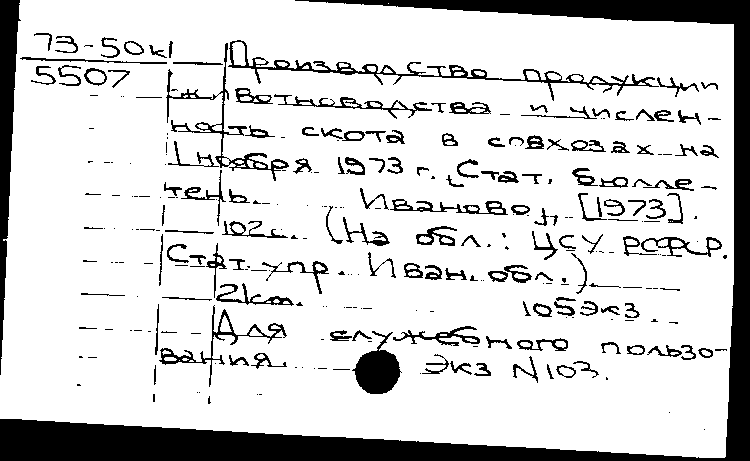 73-50к
5507
Производство продукции
животноводства и числен-
ность скота в совхозах на
1 ноября 1973 г. Стат. бюлле-
тень. Иваново, [1973].
102с. (На обл.: ЦСУ РСФСР.
Стат. упр. Иван. обл.).
21см. 105экз.
Для служебного пользо-
вания. Экз N103.